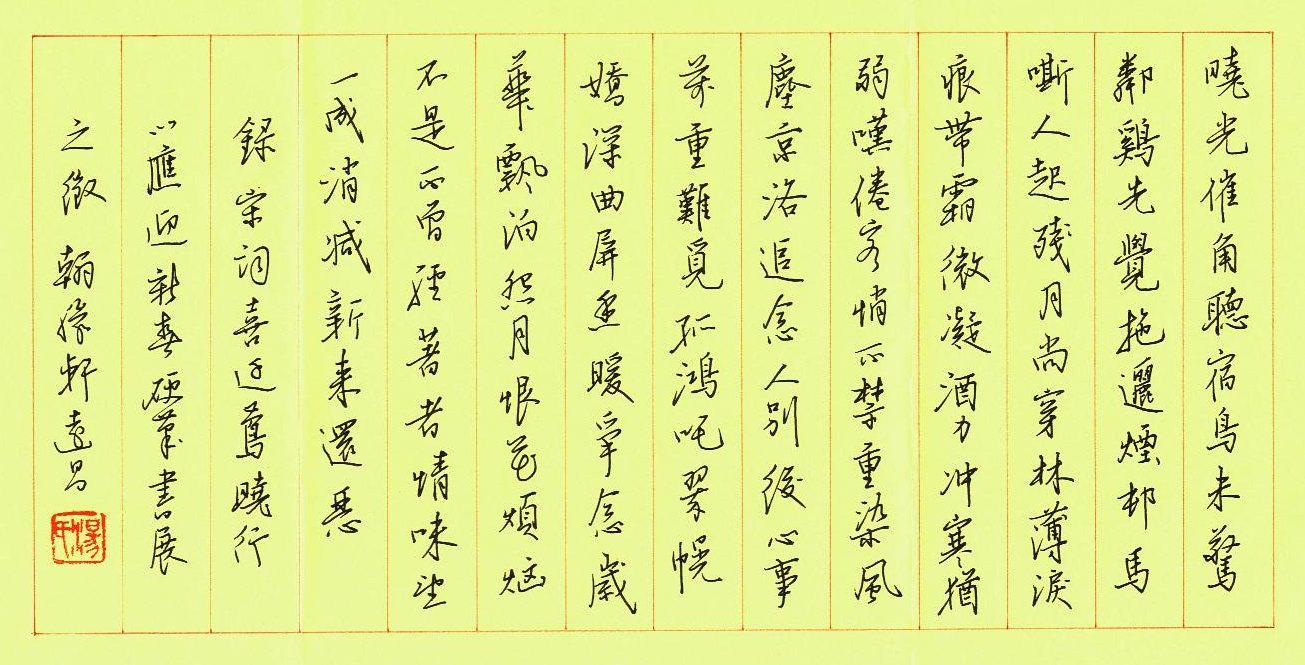 曉光催角聽宿鳥未驚
鄰鷄先覺拖邐煙邨馬
嘶人起殘月尚穿林薄淚
痕帶霜微凝酒力冲寒猶
弱嘆倦客悄不禁重染風
塵京洛追念人別後心事
萬重難覓孤鴻託翠幌
嬌深曲屏香暖爭念歲
華飄泊怨月恨花煩惱
不是不曾經著者情味望
一成消减新来還惡
錄宋詞喜迁鶯曉行
以應迎新春硬筆書展
之徵 翰緣軒遠昌